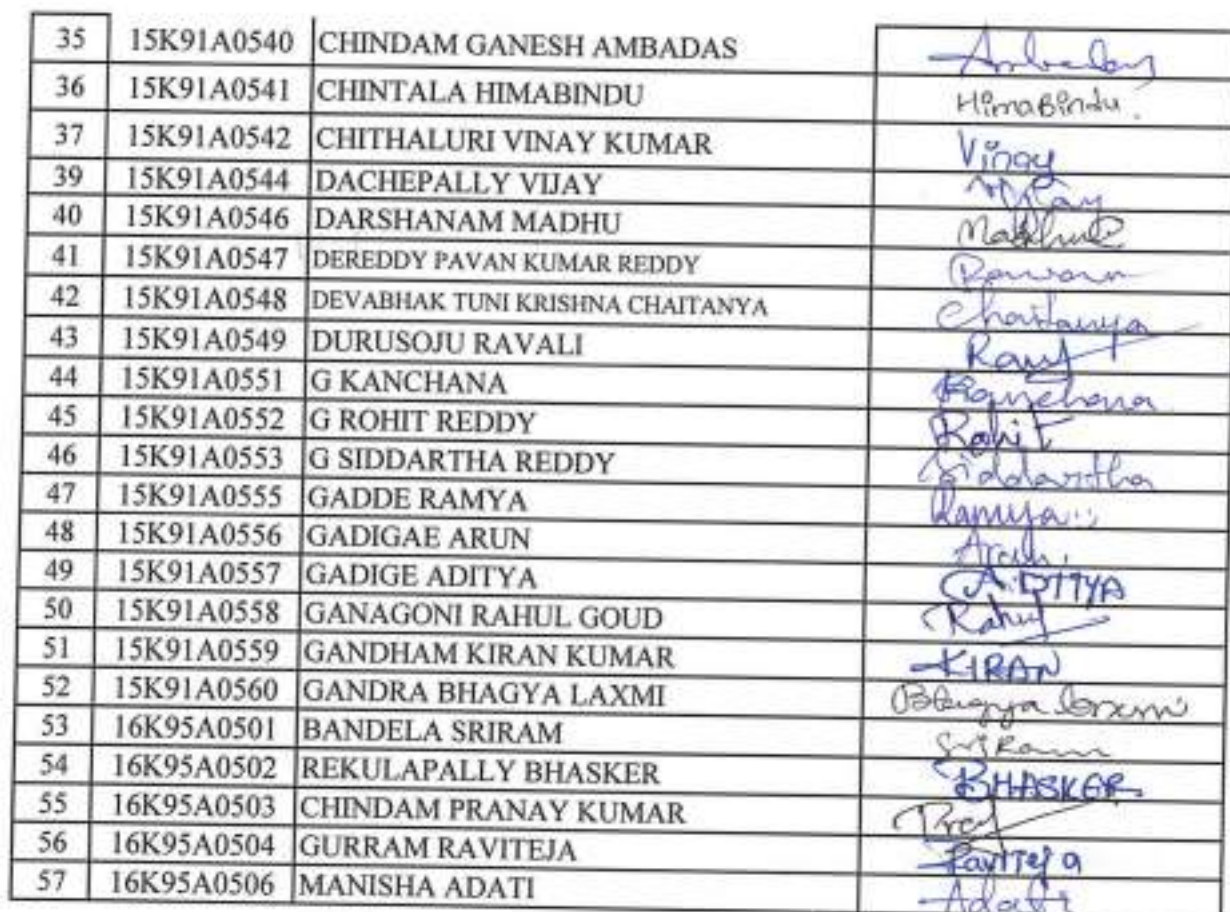 35 15K91A0540 CHINDAM GANESH AMBADAS Ambadas
36 15K91A0541 CHINTALA HIMABINDU HimaBindu.
37 15K91A0542 CHITHALURI VINAY KUMAR Vinay
39 15K91A0544 DACHEPALLY VIJAY Vijay
40 15K91A0546 DARSHANAM MADHU Madhu
41 15K91A0547 DEREDDY PAVAN KUMAR REDDY Pavan
42 15K91A0548 DEVABHAK TUNI KRISHNA CHAITANYA Chaitanya
43 15K91A0549 DURUSOJU RAVALI
44 15K91A0551 G KANCHANA Kanchana
45 15K91A0552 G ROHIT REDDY Rohit
46 15K91A0553 G SIDDARTHA REDDY Siddartha
47 15K91A0555 GADDE RAMYA Ramya
48 15K91A0556 GADIGAE ARUN Arun
49 15K91A0557 GADIGE ADITYA ADITYA
50 15K91A0558 GANAGONI RAHUL GOUD Rahul
51 15K91A0559 GANDHAM KIRAN KUMAR KIRAN
52 15K91A0560 GANDRA BHAGYA LAXMI Bhagya laxmi
53 16K95A0501 BANDELA SRIRAM SriRam
54 16K95A0502 REKULAPALLY BHASKER BHASKER
55 16K95A0503 CHINDAM PRANAY KUMAR
56 16K95A0504 GURRAM RAVITEJA RaviTeja
57 16K95A0506 MANISHA ADATI Adati